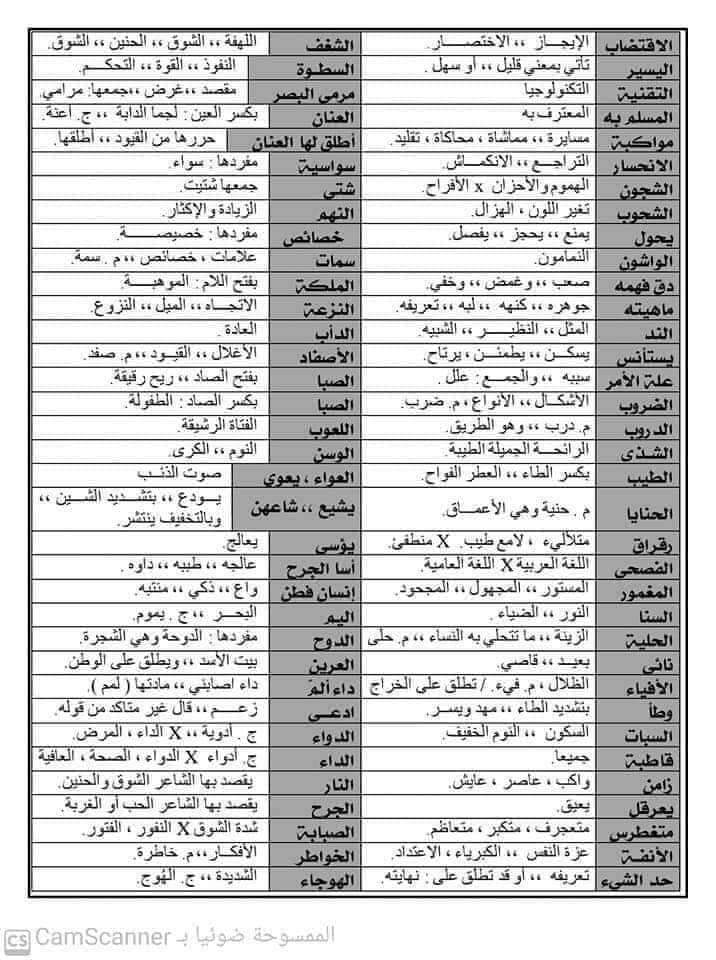 الاقتضاب الإيجـاز ،، الاختصـــار. الشغف اللهفة ،، الشوق ،، الحنين ،، الشوق.
اليسير تأتي بمعني قليل ،، أو سهل . السطوة النفوذ ،، القوة ،، التحكــم.
التقنية التكنولوجيا مرمى البصر مقصد ،،غرض ،،جمعها: مرامي.
المسلم به المعترف به العنان بكسر العين: لجما الدابة ،، ج. أعنة.
مواكبة مسايرة ،، مماشاة ، محاكاة ، تقليد. أطلق لها العنان حررها من القيود ،، أطلقها.
الانحسار التراجــع ،، الانكمــاش. سواسية مفردها : سواء.
الشجون الهموم والأحزان x الأفراح. شتى جمعها شتيت.
الشحوب تغير اللون ، الهزال. النهم الزيادة والإكثار.
يحول يمنع ،، يحجز ،، يفصل. خصائص مفردها : خصيصـــة.
الواشون النمامون. سمات علامات ، خصائص ،، م . سمة.
دق فهمه صعب ،، وغمض ،، وخفي. الملكة بفتح اللام : الموهبــة.
ماهيته جوهره ،، كنهه ،، لبه ،، تعريفه. النزعة الاتجــاه ،، الميل ،، النزوع.
الند المثل ،، النظيــــر ،، الشبيه. الدأب العادة .
يستأنس يسكــن ،، يطمئــن ، يرتاح. الأصفاد الأغلال ،، القيــود ،، م. صفد.
علة الأمر سببه ،، والجمــع : علل . الصبا بفتح الصاد ،، ريح رقيقة.
الضروب الأشكــال ،، الأنواع ، م. ضرب. الصبا بكسر الصاد : الطفولة.
الدروب م. درب ،، وهو الطريق. اللعوب الفتاة الرشيقة.
الشذى الرائحــة الجميلة الطيبة. الوسن النوم ،، الكرى.
الطيب بكسر الطاء ،، العطر الفواح. العواء ، يعوي صوت الذئـب
الحنايا م . حنية وهي الأعمــاق. يشيع ،، شاعهن يــودع ،، بتشديد الشــين ،،
وبالتخفيف ينتشر.
رقراق متلأليء ، لامع طيب. X منطفئ. يؤسى يعالج.
الفصحى اللغة العربية X اللغة العامية. أسا الجرح عالجه ،، طببه ،، داوه .
المغمور المستور ،، المجهول ،، المجحود. إنسان فطن واع ،، ذكي ،، منتبه.
السنا النور ،، الضياء . اليم البحــر ،، ج . يموم.
الحلية الزينة ،، ما تتحلي به النساء ،، م. حلى الدوح مفردها : الدوحة وهي الشجرة.
نائى بعيــد ،، قاصي. العرين بيت الأسد ،، ويطلق على الوطن.
الأفياء الظلال ، م. فيء. / تطلق على الخراج داء ألمّ داء اصابني ،، مادتها ( لمم ).
وطأ بتشديد الطاء ،، مهد ويسر. ادعى زعـــم ،، قال غير متاكد من قوله.
السبات السكون ،، النوم الخفيف. الدواء ج. أدوية ،، X الداء ، المرض.
قاطبة جميعا. الداء ج. أدواء X الدواء ، الصحة ، العافية
زامن واكب ، عاصر ، عايش. النار يقصد بها الشاعر الشوق والحنين.
يعرقل يعيق. الجرح يقصد بها الشاعر الحب أو الغربة.
متغطرس متعجرف ، متكبر ، متعاظم. الصبابة شدة الشوق X النفور ، الفتور.
الأنفة عزة النفس ،، الكبرياء ، الاعتداد. الخواطر الأفكـار،، م. خاطرة.
حد الشيء تعريفه ،، أو قد تطلق على : نهايته. الهوجاء الشديدة ،، ج. الهُوج.
CS CamScanner الممسوحة ضوئيا بـ